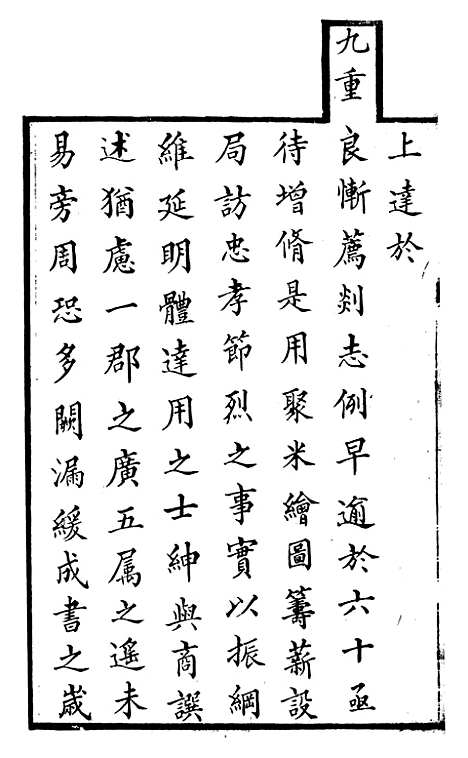 上達於
九重良慚薦剡志例早逾於六十亟
待增脩是用聚米繪圖籌薪設
局訪忠孝節烈之事實以振綱
維延明體達用之士紳與商譔
述猶慮一郡之廣五属之遙未
易旁周恐多闕漏緩成書之歲